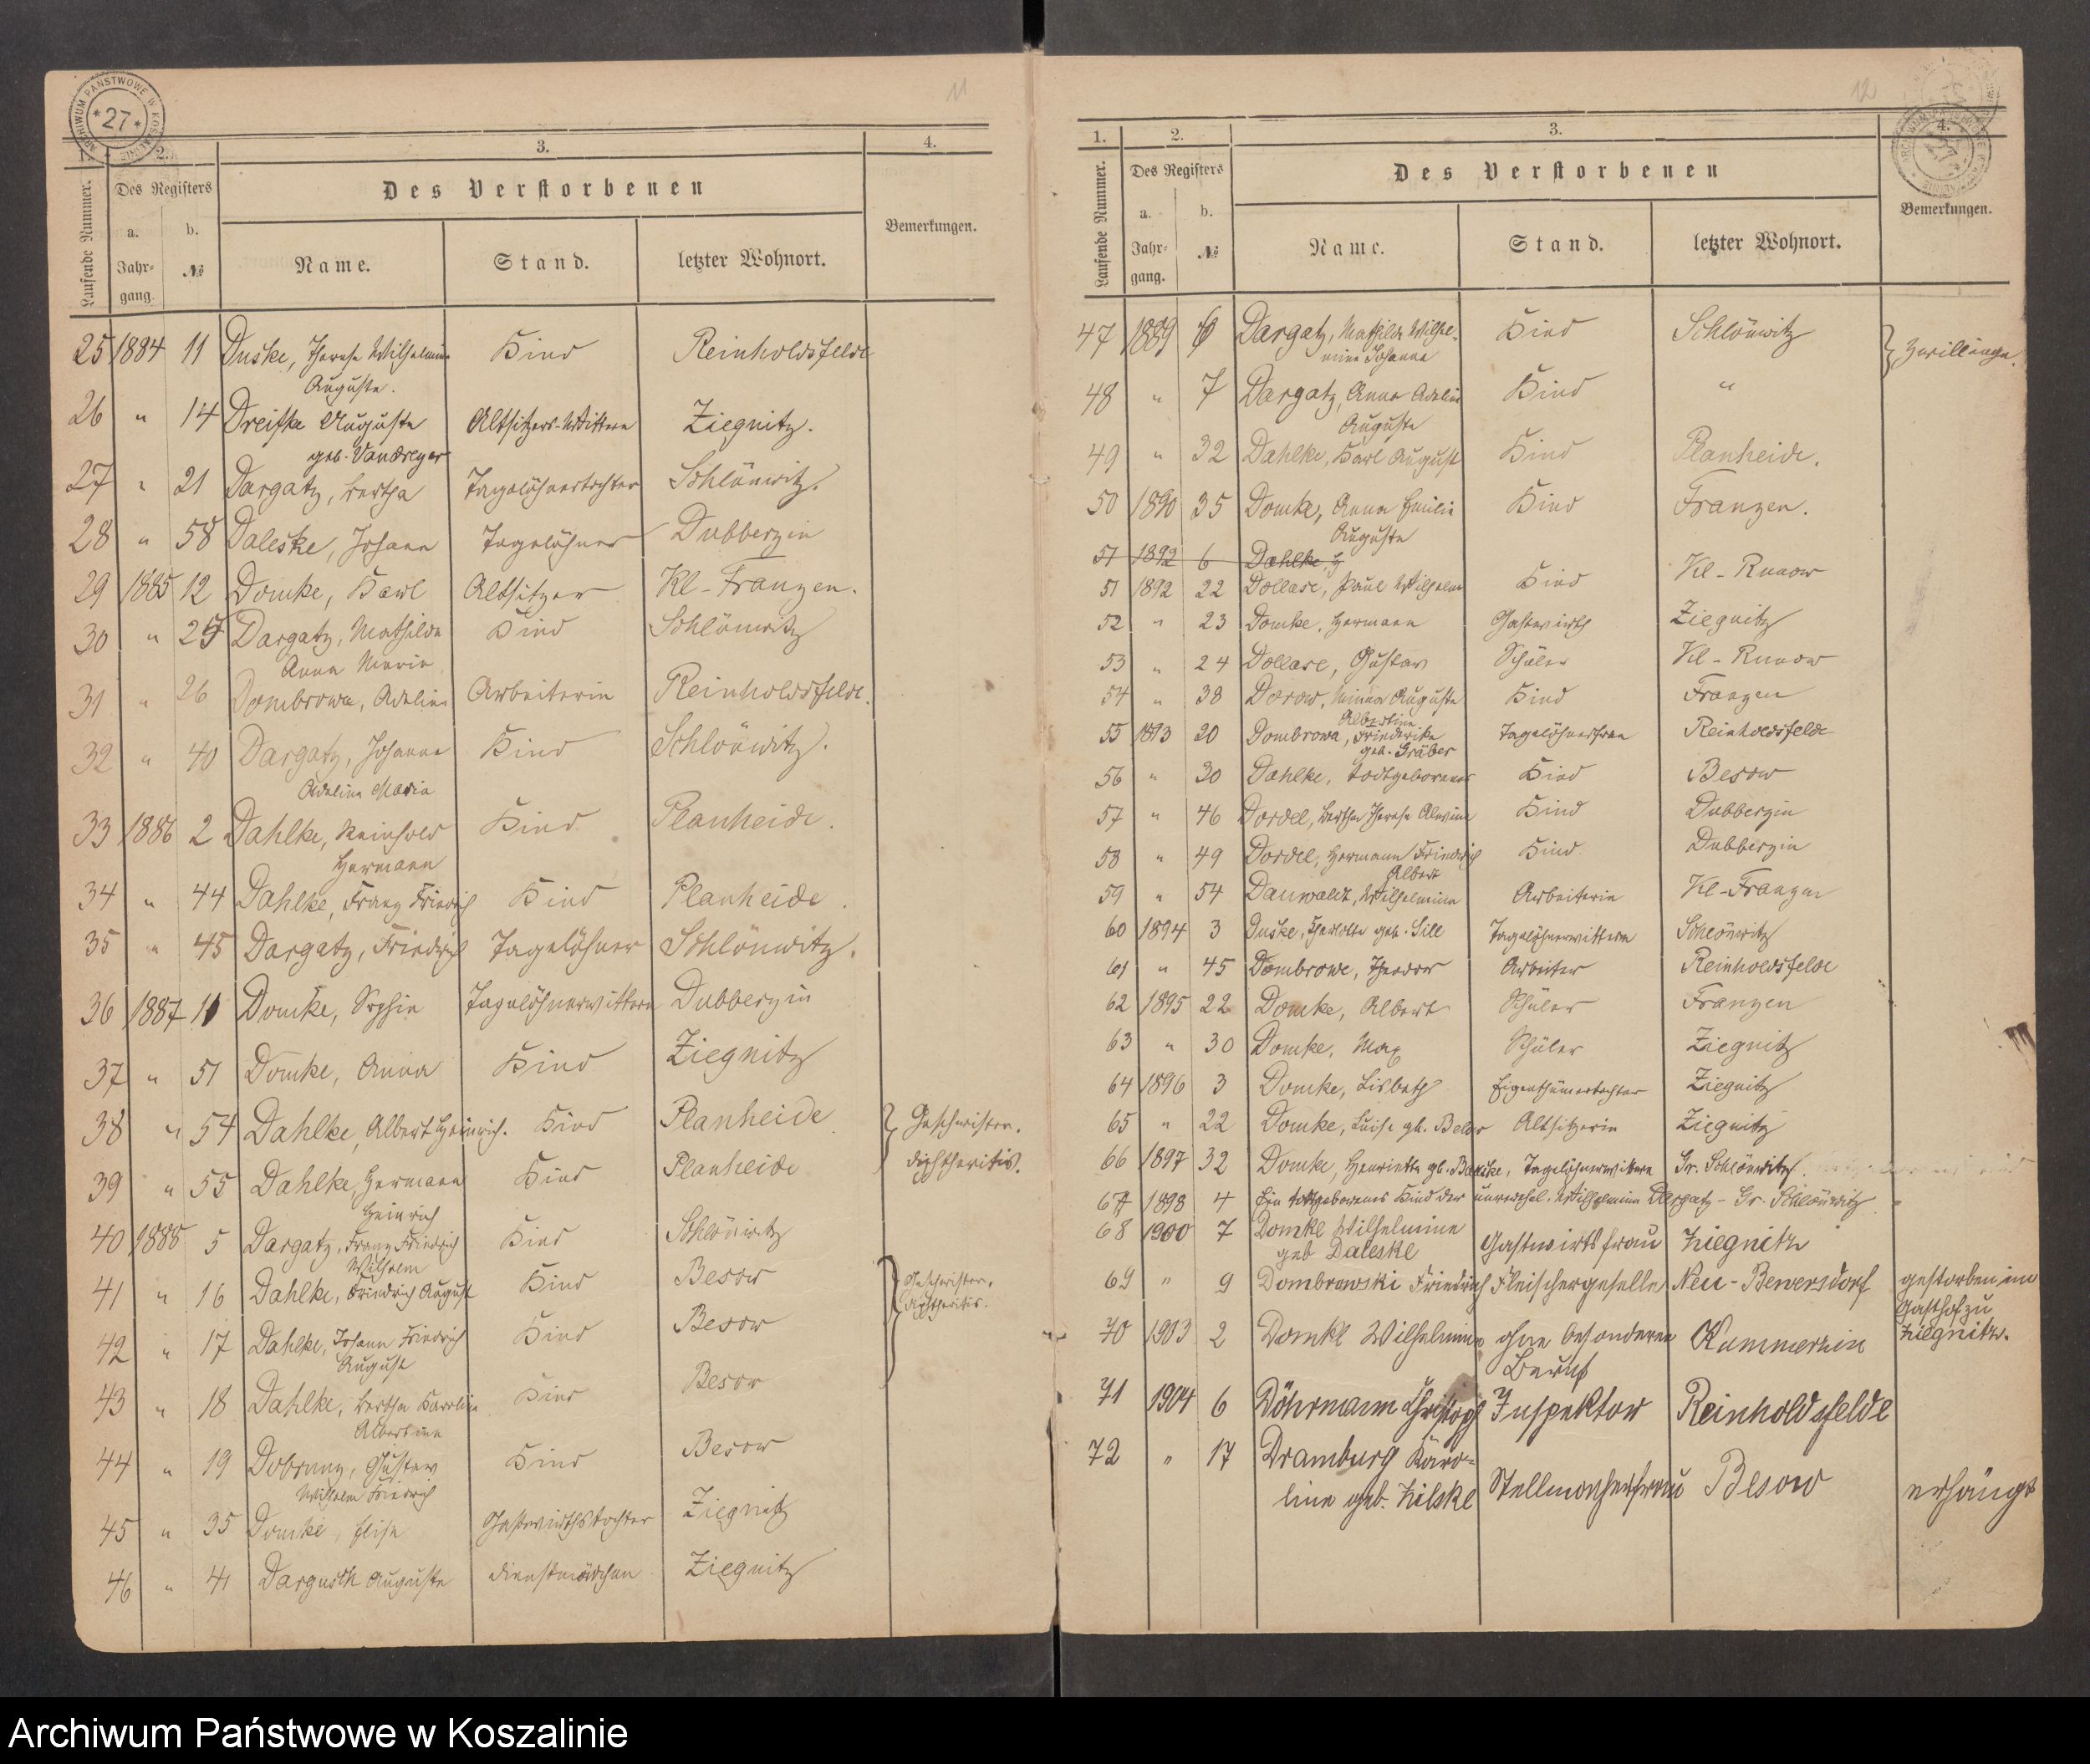 ARCHIWUM PAŃSTWOWE W KOSZALINIE
* 27 *
11
1. 2. 3. 4.
Laufende Nummer. Des Registers Des Verstorbenen Bemerkungen.
a. b.
Jahrgang. № Name. Stand. letzter Wohnort.
25 1884 11 Duske, Therese Wilhelmine Kind Reinholdsfelde
Auguste.
26 " 14 Dreifke Auguste Altsitzers-Wittwe Ziegnitz.
geb. Vandreyer
27 " 21 Dargatz, Bertha Tagelöhnertochter Schlönwitz.
28 " 58 Daleske, Johann Tagelöhner Dubberzin
29 1885 12 Domke, Karl Altsitzer Kl-Franzen.
30 " 25 Dargatz, Mathilde Kind Schlönwitz
Anna Marie
31 " 26 Dombrowa, Adeline Arbeiterin Reinholdsfelde.
32 " 40 Dargatz, Johanna Kind Schlönwitz.
Adeline Maria
33 1886 2 Dahlke, Reinhold Kind Planheide.
Hermann
34 " 44 Dahlke, Franz Friedrich Kind Planheide.
35 " 45 Dargatz, Friedrich Tagelöhner Schlönwitz.
36 1887 11 Domke, Sophie Tagelöhnerwittwe Dubberzin
37 " 51 Domke, Anna Kind Ziegnitz
38 " 54 Dahlke, Albert Heinrich. Kind Planheide Geschwister.
39 " 55 Dahlke, Hermann Kind Planheide Diphtheritis.
Heinrich
40 1888 5 Dargatz, Franz Friedrich Kind Schlönwitz
Wilhelm
41 " 16 Dahlke, Friedrich August Kind Besow Geschwister.
Diphtheritis.
42 " 17 Dahlke, Johann Friedrich Kind Besow
August
43 " 18 Dahlke, Bertha Karoline Kind Besow
Albertine
44 " 19 Gustav Kind Besow
Wilhelm Friedrich
45 " 35 Domke, Elise Gastwirthstochter Ziegnitz
46 " 41 Auguste Dienstmädchen Ziegnitz
12
1. 2. 3. 4.
Laufende Nummer. Des Registers Des Verstorbenen Bemerkungen.
a. b.
Jahrgang. № Name. Stand. letzter Wohnort.
47 1889 6 Dargatz, Mathilde Wilhel- Kind Schlönwitz Zwillinge.
mine Johanna
48 " 7 Dargatz, Anna Adeline Kind "
Auguste
49 " 32 Dahlke, Karl August Kind Planheide.
50 1890 35 Domke, Anna Emilie Kind Franzen.
Auguste
51 1892 6 Dahlke, H
51 1892 22 Dollase, Paul Wilhelm Kind Kl-Runow
52 " 23 Domke, Hermann Gastwirth Ziegnitz
53 " 24 Dollase, Gustav Schüler Kl-Runow
54 " 38 Dorow, Minna Auguste Kind Franzen
Albertine
55 1893 20 Dombrowa, Friederike Tagelöhnerfrau Reinholdsfelde
geb. Gräber
56 " 30 Dahlke, todtgeborenes Kind Besow
57 " 46 Dordel, Bertha Therese Alwine Kind Dubberzin
58 " 49 Dordel, Hermann Friedrich Kind Dubberzin
Albert
59 " 54 Dauwaldt, Wilhelmine Arbeiterin Kl-Franzen
60 1894 3 Duske, Charlotte geb. Sill Tagelöhnerwittwe Schlönwitz
61 " 45 Dombrowe, Theodor Arbeiter Reinholdsfelde
62 1895 22 Domke, Albert Schüler Franzen
63 " 30 Domke, Max Schüler Ziegnitz
64 1896 3 Domke, Lisbeth Eigenthümertochter Ziegnitz
65 " 22 Domke, Luise gb. Altsitzerin Ziegnitz
66 1897 32 Domke, Henriette gb. Tagelöhnerwittwe Gr. Schlönwitz.
67 1898 4 Ein todtgeborenes Kind der unverehel. Wilhelmine Dargatz - Gr. Schlönwitz
68 1900 7 Domke Wilhelmine Gastwirtsfrau Ziegnitz
geb Daleske
69 " 9 Dombrowski Friedrich Fleischergeselle Neu-Bewersdorf gestorben im
Gasthof zu
Ziegnitz.
70 1903 2 Domke Wilhelmine ohne besonderen Kummerzin
Beruf
71 1904 6 Döhrmann Christoph Inspektor Reinholdsfelde
72 " 17 Dramburg Karo-
line geb. Zilske Stellmacherfrau Besow erhängt
Archiwum Państwowe w Koszalinie